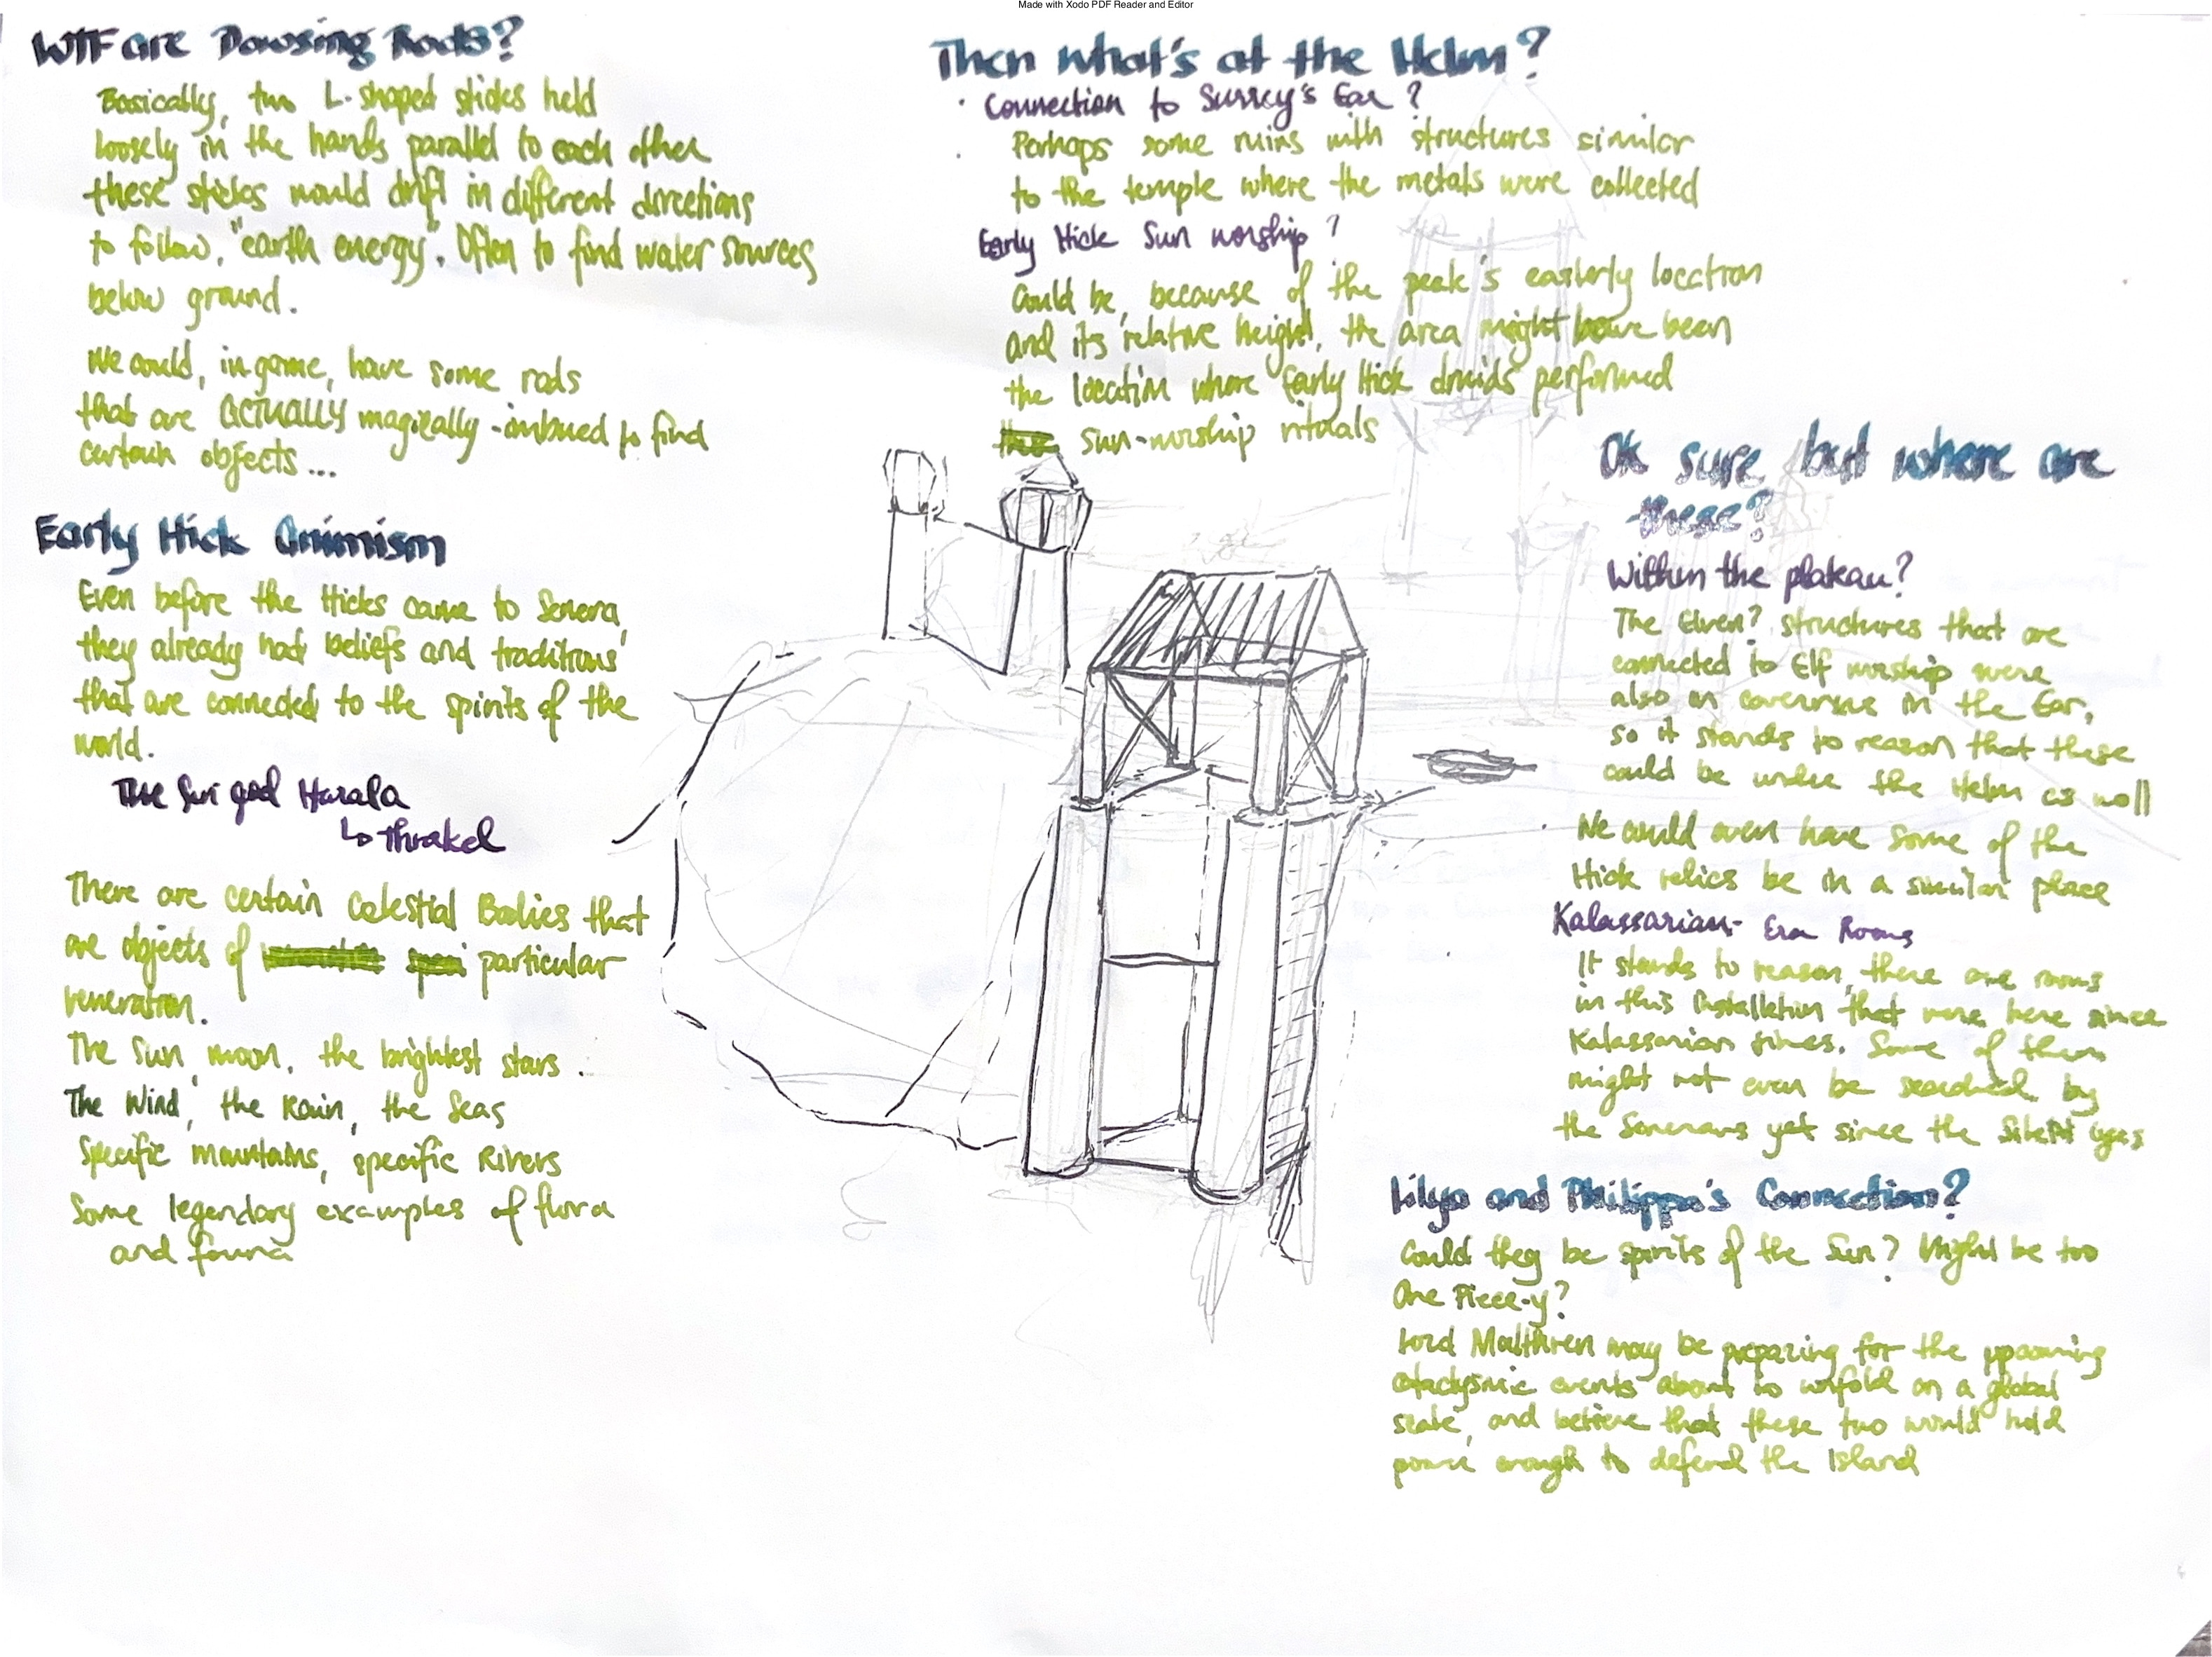 Made with Xodo PDF Reader and Editor
WTF are Dowsing Rods?
Basically, two L-shaped sticks held
loosely in the hands parallel to each other
these sticks would drift in different directions
to follow, "earth energy". Often to find water sources
below ground.
We could, in game, have some rods
that are ACTUALLY magically-imbued to find
certain objects...
Early Hick Animism
Even before the Hicks came to Senera,
they already had beliefs and traditions
that are connected to the spirits of the
world.
The Sun god Harala
↳ Thrakel
There are certain Celestial Bodies that
are objects of particular
veneration.
The Sun, moon, the brightest stars.
The Wind, the Rain, the Seas
Specific mountains, specific Rivers
Some legendary examples of flora
and fauna
Then what's at the Helm?
· Connection to Surrey's Ear?
Perhaps some ruins with structures similar
to the temple where the metals were collected
Early Hick Sun worship?
Could be, because of the peak's easterly location
and its relative height, the area might have been
the location where Early Hick druids performed
sun-worship rituals
Ok sure, but where are
these?
Within the plateau?
The Elven? structures that are
connected to Elf worship were
also in caverns in the Ear,
so it stands to reason that these
could be under the Helm as well
We could even have some of the
Hick relics be in a similar place
Kalassarian-Era Rooms
It stands to reason, there are rooms
in this installation that were here since
Kalassarian times. Some of them
might not even be searched by
the Senerans yet since the
Lilya and Philippa's Connection?
Could they be spirits of the Sun? Might be too
One Piece-y?
Lord Malthren may be preparing for the upcoming
cataclysmic events about to unfold on a global
scale, and believe that these two would hold
power enough to defend the Island